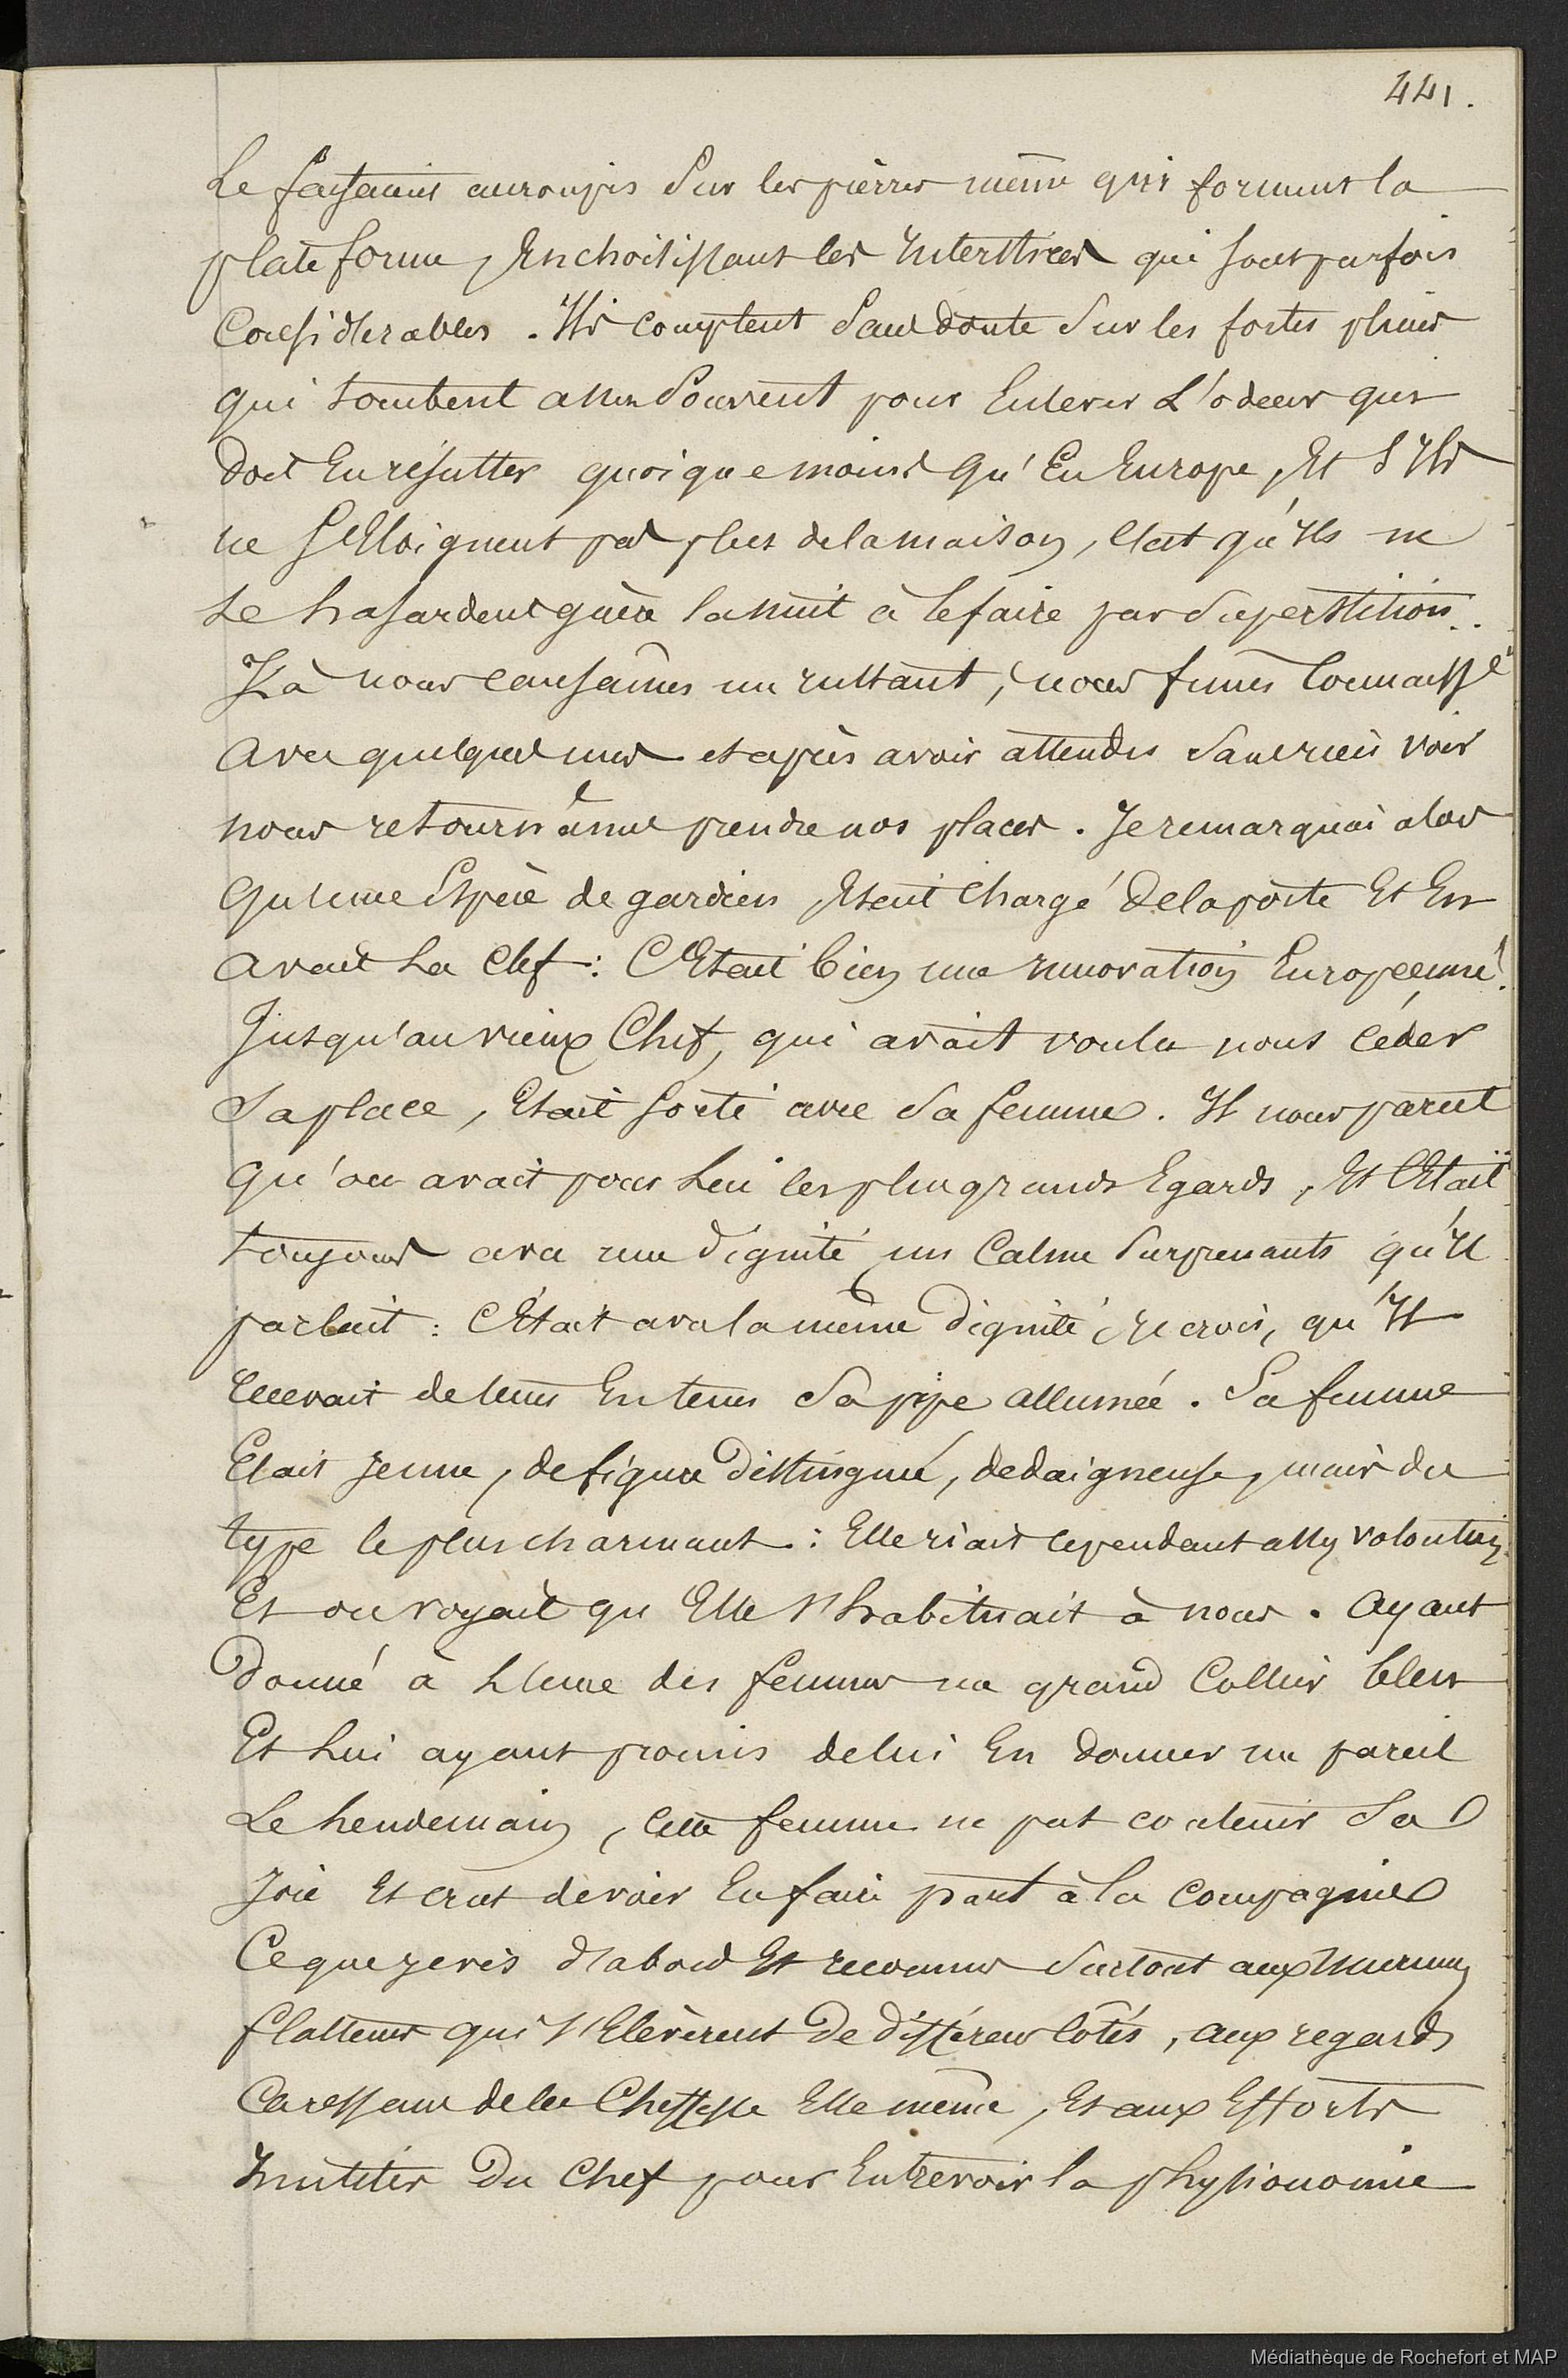 441.
Le faisaient accroupis Sur les pierres même qui forment la
plate forme, En choisissant les Interstices qui sont parfois
Considerables. Ils comptent Sans doute Sur les fortes pluies
qui tombent assez Souvent pour Enlever L'odeur qui
doit En résulter quoique moins qu'En Europe, Et S'Ils
ne S'Eloignent pas plus de la maison, c'est qu'Ils ne
se hasardent guère la nuit à le faire par Superstition..
Là nous causâmes un Instant, nous fîmes Connaissce
avec quelques unes et après avoir attendu Sans rien voir
nous retournâmes prendre nos places. Je remarquai alors
qu'une Espèce de gardien, Etait Chargé de la porte Et En
avait La Clef: C'Etait bien une Innovation Européenne!
Jusqu'au vieux Chef, qui avait voulu nous céder
Sa place, Etait Sorti avec Sa femme. Il nous parut
qu'on avait pour Lui les plus grands Egards, Et C'Etait
toujours avec une dignité, un Calme Surprenants qu'Il
parlait: C'Etait avec la même dignité, Je crois, qu'Il
recevait de tems En tems Sa pipe allumée. Sa femme
Etait Jeune, de figure distinguée, dedaigneuse, mais du
type le plus charmant: Elle riait cependant assez volontiers
Et on voyait qu'Elle s'habituait à nous. Ayant
donné à L'une des femmes un grand Collier bleu
Et Lui ayant promis de lui En donner un pareil
Le Lendemain, cette femme ne put contenir Sa
Joie Et crut devoir En faire part à la Compagnie
Ce que je vis d'abord Et reconnus Surtout aux murmures
flatteurs qui s'Elevèrent de différens côtés, aux regards
Caressans de la Cheffesse Elle même, Et aux Efforts
Inutiles du Chef pour Entrevoir la physionomie
Médiathèque de Rochefort et MAP